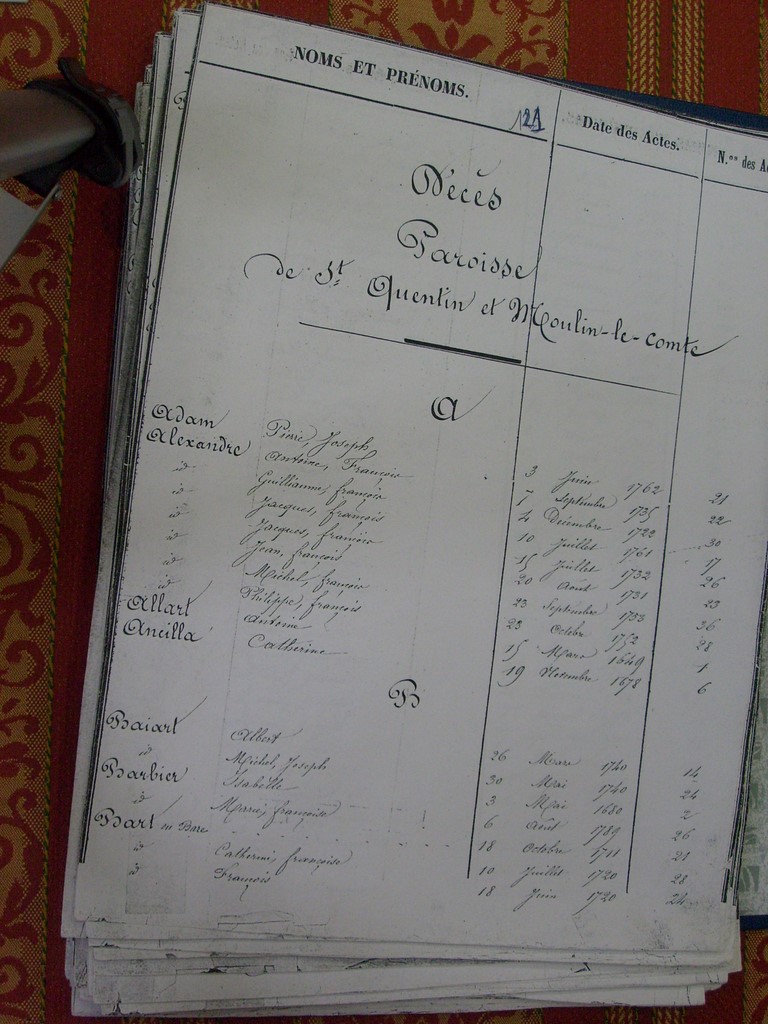 NOMS ET PRÉNOMS. 121 Date des Actes. N.os des
Décès
Paroisse
de St. Quentin et Moulin-le-comte
A
Adam Pierre, Joseph 3 Juin 1762 21
Alexandre Antoine, François 7 Septembre 1735 22
id Guilliaume, françois 4 Décembre 1722 30
id Jacques, françois 10 Juillet 1761 17
id Jacques, françois 15 Juillet 1732 26
id Jean, françois 20 Août 1731 23
id Michel, françois 23 Septembre 1733 36
id Philippe, françois 23 Octobre 1752 28
Allart Antoine 15 Mars 1649 1
Ancilla Catherine 19 Novembre 1678 6
B
Baiart Albert 26 Mars 1740 14
id Michel, Joseph 30 Mai 1740 24
Barbier Isabelle 3 Mai 1680 2
id Marie, françoise 6 Août 1789 26
Bart ou Bare 18 Octobre 1711 21
id Catherine, françoise 10 Juillet 1720 28
id François 18 Juin 1720 24